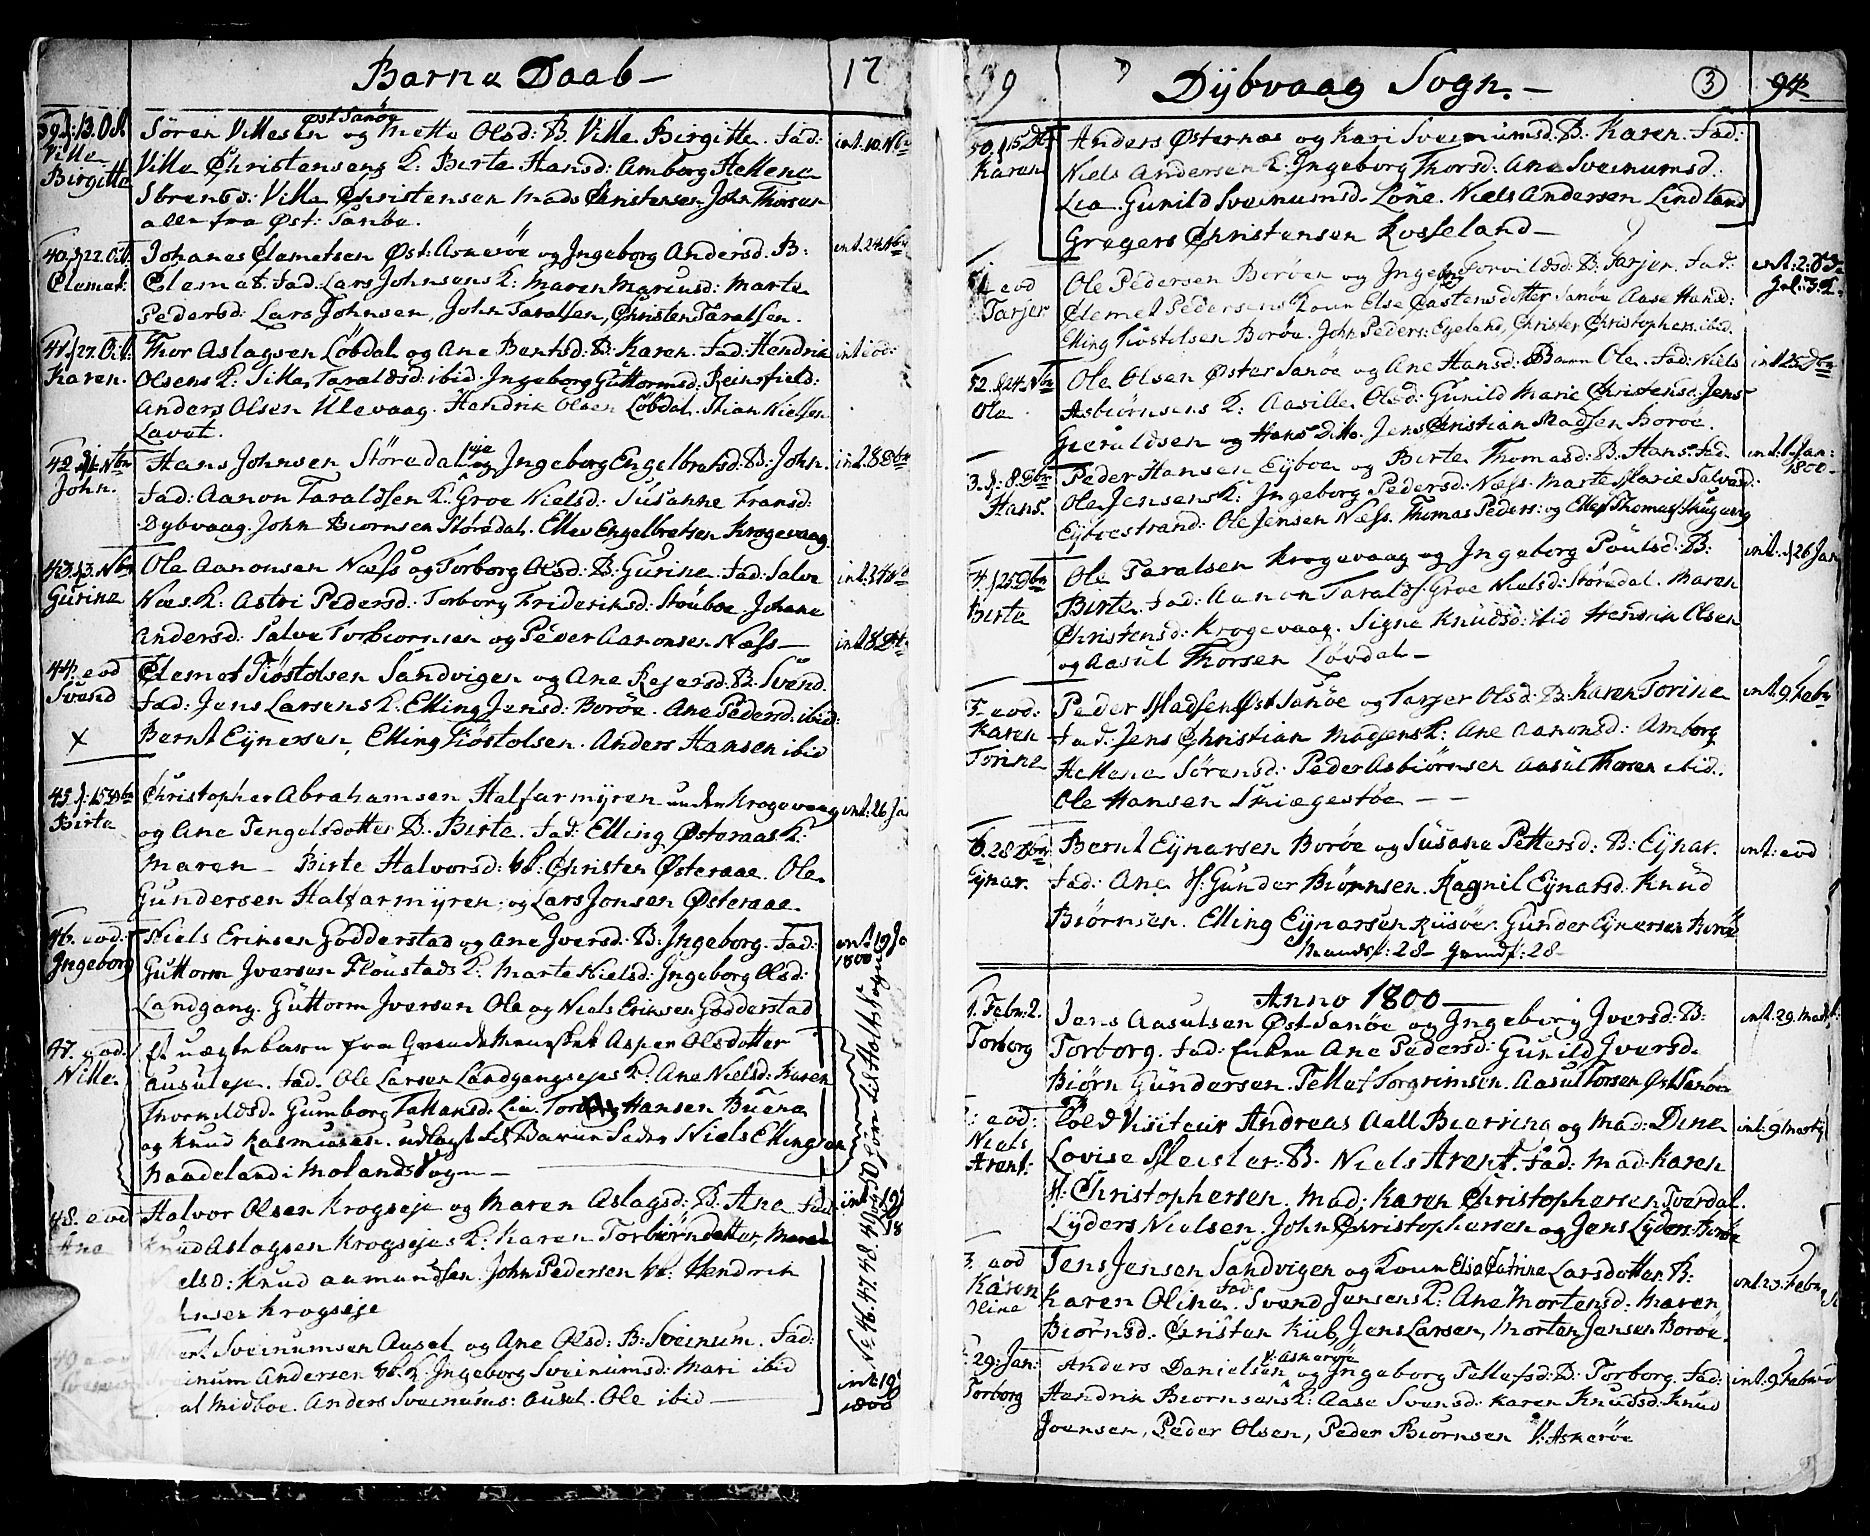 Barne Daab —
17
39. d: 13. Oct.
Ville
Birgitte
Øst Sanøe
Sören Villesen og Mette Olsd: B. Ville Birgitte. Fad:
Ville Christensens K: Birte Hansd: Amborg Hellena
Sörensd: Ville Christensen Mads Christensen John Thorsen
alle fra Øst: Sanöe.
int. 10. Nbr
40. d 22. Oct.
Clemet:
Johanes Clemetsen Øst: Askerøe og Ingeborg Andersd. B:
Clemet: Fad: Lars Johnsens K: Maren Mariusd: Marte
Pedersd: Lars Johnsen, John Taralsen, Christen Taralsen.
int. 24 Nbr
41. d 27. Oct:
Karen.
Thor Aslagsen Löbdal og Ane Berntsd: B: Karen. Fad: Hendrik
Olsens K: Sille Taraldsd: ibid. Ingeborg Guttormsd: Reinsfield:
Anders Olsen Ulevaag. Hendrik Olsen Löbdal. Stian Nielsen
Lavet.
int: eod:
42. d 1. Nbr
John.
Hans Johnsen Störedal eje og Ingeborg Engelbretsd: B: John.
Fad: Aanon Taraldsen K: Groe Nielsd: Susanne Fransd:
Dybvaag. John Biörnsen Störedal. Ellev Engelbretsen Krogevaag.
int. 28 Dbr
43. d 3. Nbr
Gurine
Ole Aanonsen Næss og Torborg Olsd: B: Gurine. Fad: Salve
Næs. K: Astri Pedersd: Torborg Frideriksd: Stöuboe. Johane
Andersd: Salve Torbiornsen og Peder Aanonsen Næss —
int. 24 Nbr
44. eod
Svend
Clemet Tiöstolsen Sandvigen og Ane Rejersd: B: Svend.
Fad: Jens Larsens K. Elling Jensd: Boröe. Ane Pedersd. ibid:
Bernt Eynersen, Elling Tiöstolsen. Anders Hansen ibid
int. 8 Dbr
45. d: 15 Dbr
Birte
Christopher Abrahamsen Halfarmyren under Krogevaag
og Ane Tengelsdotter B. Birte. Fad: Elling Østeraas K:
Maren — Birte Halvorsd: ibd: Christen Østeraae. Ole
Gundersen Halfarmyren. og Lars Jonsen Østeraae.
int. 26 Ja
46. eod:
Ingeborg
Niels Eriksen Godderstad og Ane Iversd: B: Ingeborg. Fad:
Guttorm Iversen Flöustads K: Marte Nielsd: Ingeborg Olsd:
Landgang. Guttorm Iversen Ole og Niels Eriksen Godderstad
int. 19 Ja
1800
47. eod.
Nille.
Et uægte barn fra Qvindemennisket Asper Olsdotter
Ausuleje. Fad. Ole Larsen Landgangsejes K: Ane Nielsd: Karen
Thorkildsd. Gumborg Tallaksd. Lia. Hansen Buene
og Knud Rasmussen. udlagt til Barnefader Niels Ellingsen
Haadeland i Molands Sogn —
No 46. 47. 48. 49 og 50 hörer til Holts Sogn
48. eod
Ane
Halvor Olsen Krogseje og Maren Aslagsd: B: Ane. Fad:
Knud Aslagsen Krogsejes K: Karen Torbiörndotter, Maren
elsd: Knud Aamundsen. John Pedersen ibd: Hendrik
ensen Krogseje
int. 19
18
49 eod
Sveinum
Sveinumsen Ausel og Ane Olsd: B: Sveinum. Fad:
einum Andersen ibd. K: Ingeborg Sveinumsd: Mari ibid
al Midboe. Anders Sveinums: Ausel. Ole ibid —
int. 19
1800
99
Dÿbvaag Sogn. —
3
94
50. d 15 Dbr
Karen
Anders Østernæs og Kari Sveinumsd: B: Karen. Fad:
Niels Andersen K: Ingeborg Thorsd: Ane Sveinumsd:
Lia. Gunild Sveinumsd. Löne. Niels Andersen Lindland
Gregers Christensen Kosseland —
51. eod
Tarjer
Ole Pedersen Boröen og Ingeborg Torvildsd: B: Tarjer. Fad:
Clemet Pedersens Kone Else Castensdotter Sanöe Aase Hansd:
Elling Tiöstelsen Boröe. John Peders: Egeland, Christen Christophers: ibid.
int: 2: Dbr
52. d 24. Nbr
Ole
Ole Olsen Øster Sanöe og Ane Hansd: Barn Ole. Fad: Niels
Asbiörnsens K: Aasille Olsd: Gunild Marie Christensd: Jens
Gieruldsen og Hans Ditto. Jens Christian Madsen Boröe.
int. 25 Dbr
3. d: 8. Dbr
Hans.
Peder Hansen Eÿboe og Birte Thomasd: B: Hans. Fad.
Ole Jensens K: Ingeborg Pedersd: Næss. Marte Marie Salvesd:
Eÿboestrand: Ole Jensen Næss. Thomas Peders: og Ellef Thomass:
int. 1. Jan:
1800 —
4. d 25 Dbr
Birte
Ole Taralsen Krogevaag og Ingeborg Poulsd: B:
Birte. Fad: Aanon Taralds: Groe Nielsd: Störedal. Maren
Christensd: Krogevaag. Signe Knudsd: ibid Hendrik Olsen
og Aasul Thorsen Lövdal —
int. d 26 Jan
5. eod:
Karen
Torine
Peder Madsen Øst Sanöe og Tarjer Olsd: B: Karen Torine
Fad. Jens Christian Madsens K: Ane Aanonsd: Amborg
Hellena Sörensd: Peder Asbiörnsen Aasul Thorsen ibid.
Ole Hansen Skiegestöe — —
int. 9. Febr
6. 28 Dbr
Eÿnar.
Bernt Eÿnarsen Boröe og Susane Pettersd: B: Eÿnar.
Fad: Ane H: Gunder Biörnsen. Ragnil Eÿnarsd: Knud
Biörnsen. Elling Eÿnarsen Riisöe. Gunder Eÿnersen Boröe
int: eod
Mandk: 28 — Qvindk: 28 —
Anno 1800 —
1. Febr: 2.
Torborg
Jens Aasulsen Øst Sanöe og Ingeborg Iversd: B:
Torborg. Fad: Enken Ane Pedersd: Gunild Iversd.
Biörn Gundersen. Tellef Torgrimsen. Aasul Torsen Øst Sanöe
int. 29. Marti:
2. eod:
Niels
Arent:
Told Visiteur Andreas Aall Biærring og Mad: Dine
Lovise Meisler: B. Niels Arent. Fad: Mad: Karen
H: Christophersen, Mad: Karen Christophersen Tverdal.
Lÿders Nielsen, John Christophersen og Jens Lÿders: Boröe
int. 9. Martÿ
3. eod
Karen
Oline
Jens Jensen Sandvigen og Kone Elsa Catrine Larsdotter. B:
Karen Oline. Fad: Svend Jensens K: Ane Mortensd: Maren
Biörnsd. Christen Kiib, Jens Larsen, Morten Jensen Boröe.
int. 23. Febr
29. Jan:
Torborg
V. Askeröje
Anders Danielsen og Ingeborg Tellefsd: B: Torborg. Fad:
Hendrik Biörnsens K: Aase Svensd: Karen Knudsd: Knud
Joensen, Peder Olsen, Peder Biörnsen V: Askeröe
int. 9. Febr: